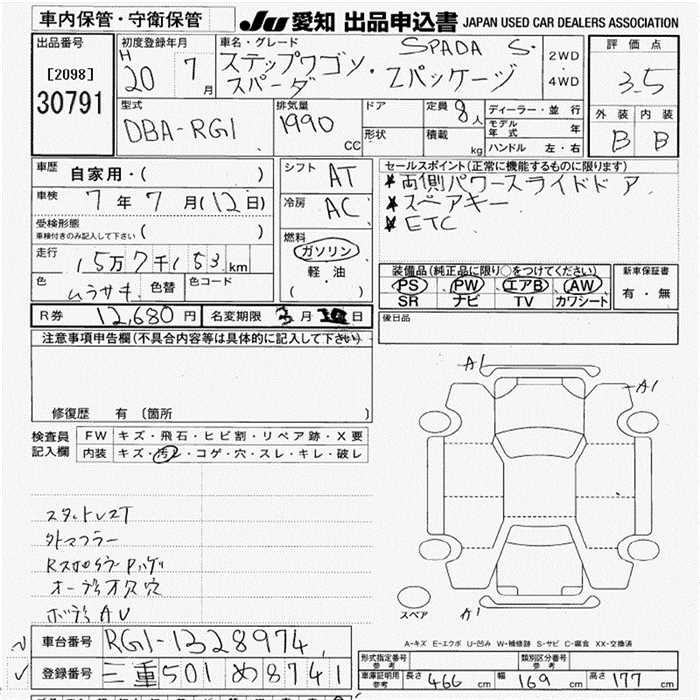 車内保管・守衛保管
JU 愛知 出品申込書 JAPAN USED CAR DEALERS ASSOCIATION
出品番号
[2098]
30791
初度登録年月
H 20 7月
車名・グレード
SPADA S・
ステップワゴン・
スパーダ Zパッケージ
2WD
4WD
評価点
3.5
外装 内装
B B
型式
DBA-RG1
排気量
1990 CC
ドア
形状
定員 8人
積載 kg
ディーラー・並行
モデル年式 年
ハンドル 左・右
車歴 自家用・( )
車検 7年7月(12日)
受検形態 ( )
車検付きのみ記入して下さい
走行 15万7千153km
色 ムラサキ 色替 色コード
シフト AT
冷房 AC
燃料
ガソリン
軽油
( )
セールスポイント(正常に機能するものに限ります)
★両側パワースライドドア
★スペアキー
★ETC
装備品(純正品に限り○をつけてください)
PS PW エアB AW
SR ナビ TV カワシート
新車保証書
有・無
R券 12,680円 名変期限 月 日
後日品
注意事項申告欄(不具合内容等は具体的に記入して下さい)
修復歴 有 〔箇所 〕
検査員
記入欄
FW キズ・飛石・ヒビ割・リペア跡・X要
内装 キズ・汚レ・コゲ・穴・スレ・キレ・破レ
外マフラー
A1
A1
スペア
A1
A-キズ E-エクボ U-凹み W-補修跡 S-サビ C-腐食 XX-交換済
車台番号 RG1-1328974
登録番号 三重501め8741
形式指定番号
参考
類別区分番号
参考
車庫証明用
参考
長さ 466 cm 幅 169 cm 高さ 177 cm